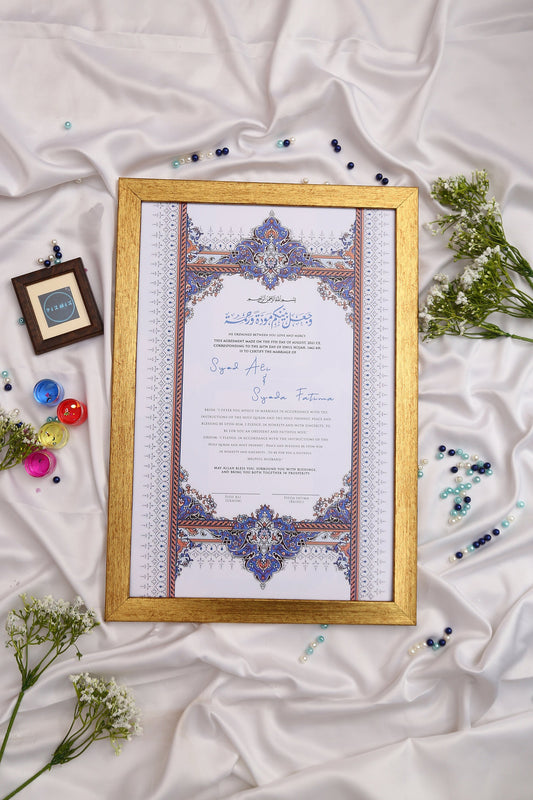 بسم الله الرحمن الرحيم
وجعل بينكم مودة ورحمة
HE ORDAINED BETWEEN YOU LOVE AND MERCY
THIS AGREEMENT MADE ON THE 5TH DAY OF AUGUST, 2021 CE
CORRESPONDING TO THE 26TH DAY OF DHUL HIJJAH, 1442 AH
IS TO CERTIFY THE MARRIAGE OF
Syed Ali
&
Syeda Fatima
BRIDE: "I OFFER YOU MYSELF IN MARRIAGE IN ACCORDANCE WITH THE
INSTRUCTIONS OF THE HOLY QURAN AND THE HOLY PROPHET, PEACE AND
BLESSING BE UPON HIM. I PLEDGE, IN HONESTY AND WITH SINCERITY, TO
BE FOR YOU AN OBEDIENT AND FAITHFUL WIFE."
GROOM: "I PLEDGE, IN ACCORDANCE WITH THE INSTRUCTIONS OF THE
HOLY QURAN AND THE HOLY PROPHET, PEACE AND BLESSING BE UPON HIM
IN HONESTY AND SINCERITY, TO BE FOR YOU A FAITHFUL
HELPFUL HUSBAND."
MAY ALLAH BLESS YOU, SURROUND YOU WITH BLESSINGS,
AND BRING YOU BOTH TOGETHER IN PROSPERITY.
SYED ALI
(GROOM)
SYEDA FATIMA
(BRIDE)